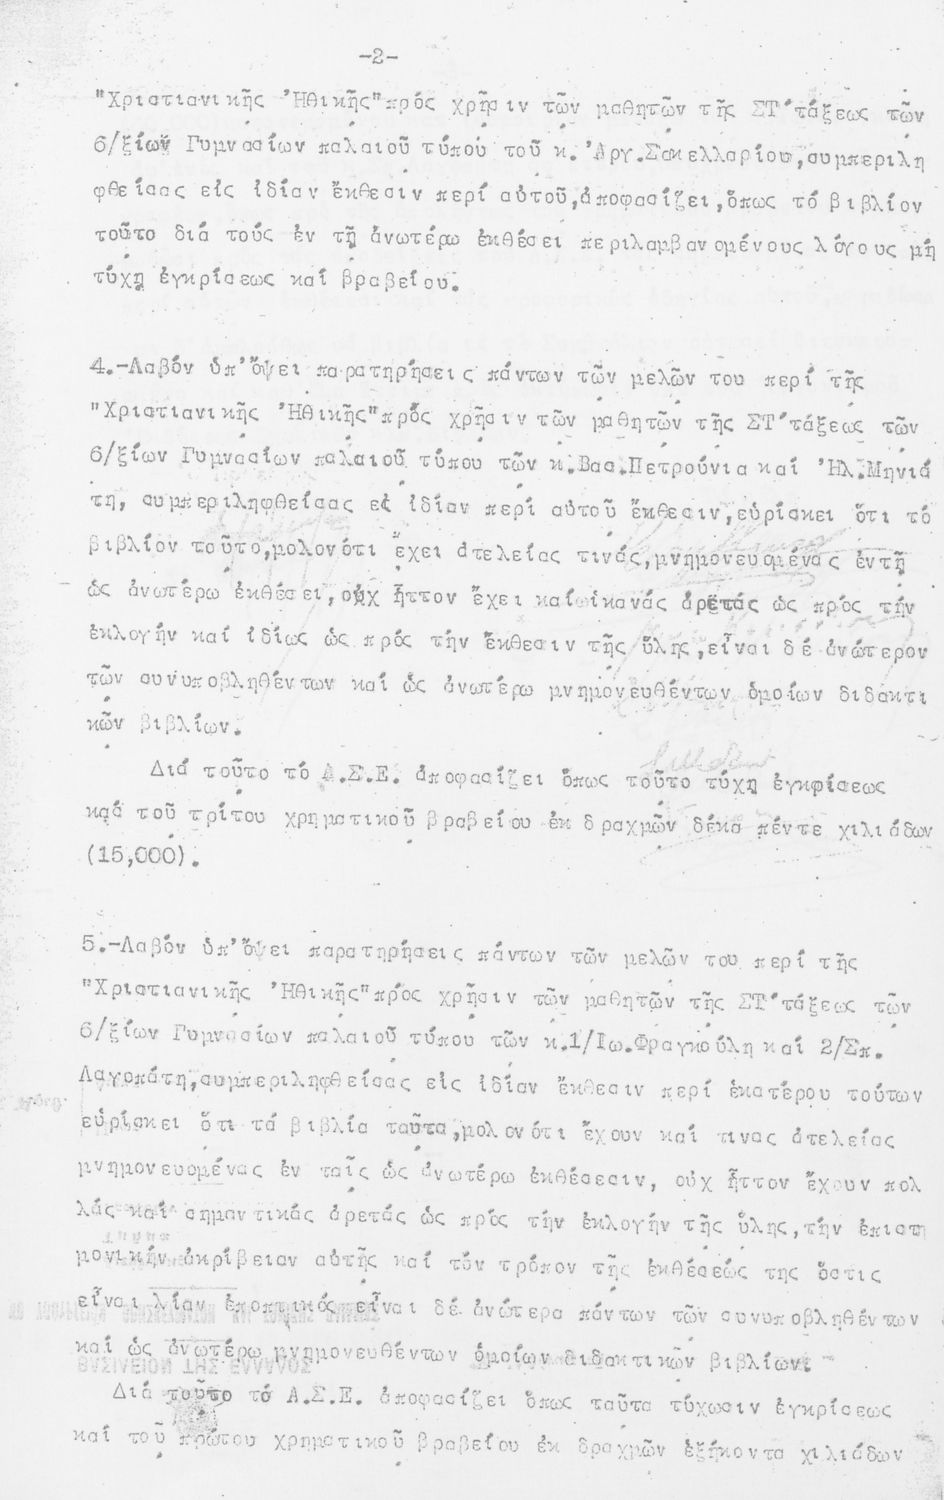 -2-
"Χριστιανικῆς Ἠθικῆς" πρός χρῆσιν τῶν μαθητῶν τῆς ΣΤ΄τάξεως τῶν
6/ξίων Γυμνασίων παλαιοῦ τύπου τοῦ κ. Ἀργ.Σακελλαρίου,συμπεριλη
φθείσας εἰς ἰδίαν ἔκθεσιν περί αὐτοῦ,ἀποφασίζει,ὅπως τό βιβλίον
τοῦτο διά τούς ἐν τῇ ἀνωτέρω ἐκθέσει περιλαμβανομένους λόγους μή
τύχῃ ἐγκρίσεως καί βραβείου.
4.-Λαβόν ὑπ'ὄψει παρατηρήσεις πάντων τῶν μελῶν του περί τῆς
"Χριστιανικῆς Ἠθικῆς"πρός χρῆσιν τῶν μαθητῶν τῆς ΣΤ΄τάξεως τῶν
6/ξίων Γυμνασίων παλαιοῦ τύπου τῶν κ.Βασ.Πετρούνια καί Ἠλ.Μηνιά
τη, συμπεριληφθείσας εἰ ἰδίαν περί αὐτοῦ ἔκθεσιν,εὑρίσκει ὅτι τό
βιβλίον τοῦτο,μολονότι ἔχει ἀτελείας τινάς,μνημονευομένας ἐντῇ
ὡς ἀνωτέρω ἐκθέσει,οὐχ ἧττον ἔχει καί ἱκανάς ἀρετάς ὡς πρός τήν
ἐκλογήν καί ἰδίως ὡς πρός τήν ἔκθεσιν τῆς ὕλης,εἶναι δέ ἀνώτερον
τῶν συνυποβληθέντων καί ὡς ἀνωτέρω μνημονευθέντων ὁμοίων διδακτι
κῶν βιβλίων.
Διά τοῦτο τό Α.Σ.Ε. ἀποφασίζει ὅπως τοῦτο τύχῃ ἐγκρίσεως
καί τοῦ τρίτου χρηματικοῦ βραβείου ἐκ δραχμῶν δέκα πέντε χιλιάδων
(15,000).
5.-Λαβόν ὑπ'ὄψει παρατηρήσεις πάντων τῶν μελῶν του περί τῆς
"Χριστιανικῆς Ἠθικῆς"πρός χρῆσιν τῶν μαθητῶν τῆς ΣΤ΄τάξεως τῶν
6/ξίων Γυμνασίων παλαιοῦ τύπου τῶν κ.1/Ιω.Φραγκούλη καί 2/Σπ.
Λαγοπάτη,συμπεριληφθείσας εἰς ἰδίαν ἔκθεσιν περί ἑκατέρου τούτων
εὑρίσκει ὅτι τά βιβλία ταῦτα,μολονότι ἔχουν καί τινας ἀτελείας
μνημονευομένας ἐν ταῖς ὡς ἀνωτέρω ἐκθέσεσιν, οὐχ ἧττον ἔχουν πολ
λάς καί σημαντικάς ἀρετάς ὡς πρός τήν ἐκλογήν τῆς ὕλης,τήν ἐπιστη
μονικήν ἀκρίβειαν αὐτῆς καί τόν τρόπον τῆς ἐκθέσεώς της ὅστις
εἶναι λίαν ἐποπτικός εἶναι δέ ἀνώτερα πάντων τῶν συνυποβληθέντων
καί ὡς ἀνωτέρω μνημονευθέντων ὁμοίων διδακτικῶν βιβλίων.
Διά τοῦτο τό Α.Σ.Ε. ἀποφασίζει ὅπως ταῦτα τύχωσιν ἐγκρίσεως
καί τοῦ πρώτου χρηματικοῦ βραβείου ἐκ δραχμῶν ἑξήκοντα χιλιάδων